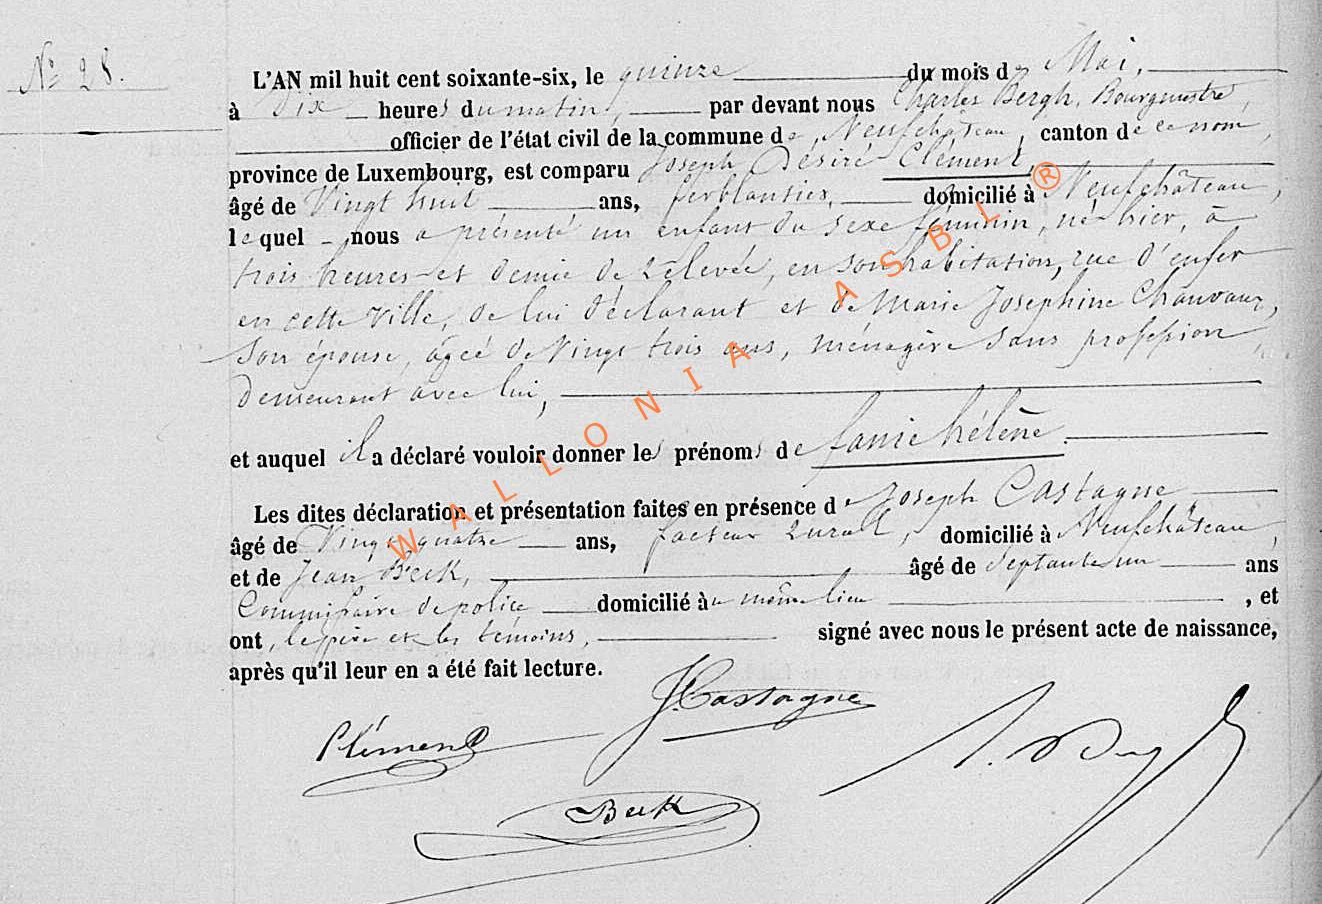 N° 28.
L'AN mil huit cent soixante-six, le quinze du mois de Mai,
à Dix heures du matin, par devant nous Charles Bergh, Bourgmestre,
officier de l'état civil de la commune de Neufchâteau, canton de ce nom,
province de Luxembourg, est comparu Joseph Désiré Clément,
âgé de Vingt huit ans, ferblantier, domicilié à Neufchâteau,
lequel nous a présenté un enfant du sexe féminin, né hier, à
trois heures et demie de relevée, en son habitation, rue d'enfer
en cette Ville, de lui déclarant et de Marie Josephine Chauvaux,
son épouse, âgée de Vingt trois ans, ménagère sans profession,
demeurant avec lui,
et auquel il a déclaré vouloir donner les prénoms de fanie hélène.
Les dites déclaration et présentation faites en présence de Joseph Castagne
âgé de Vingt quatre ans, facteur rural, domicilié à Neufchâteau,
et de Jean Beck, âgé de septante un ans
Commissaire de police domicilié au même lieu, et
ont, le père et les témoins, signé avec nous le présent acte de naissance,
après qu'il leur en a été fait lecture.
Clément
J. Castagne
Beck
WALLONIA ASBL ®